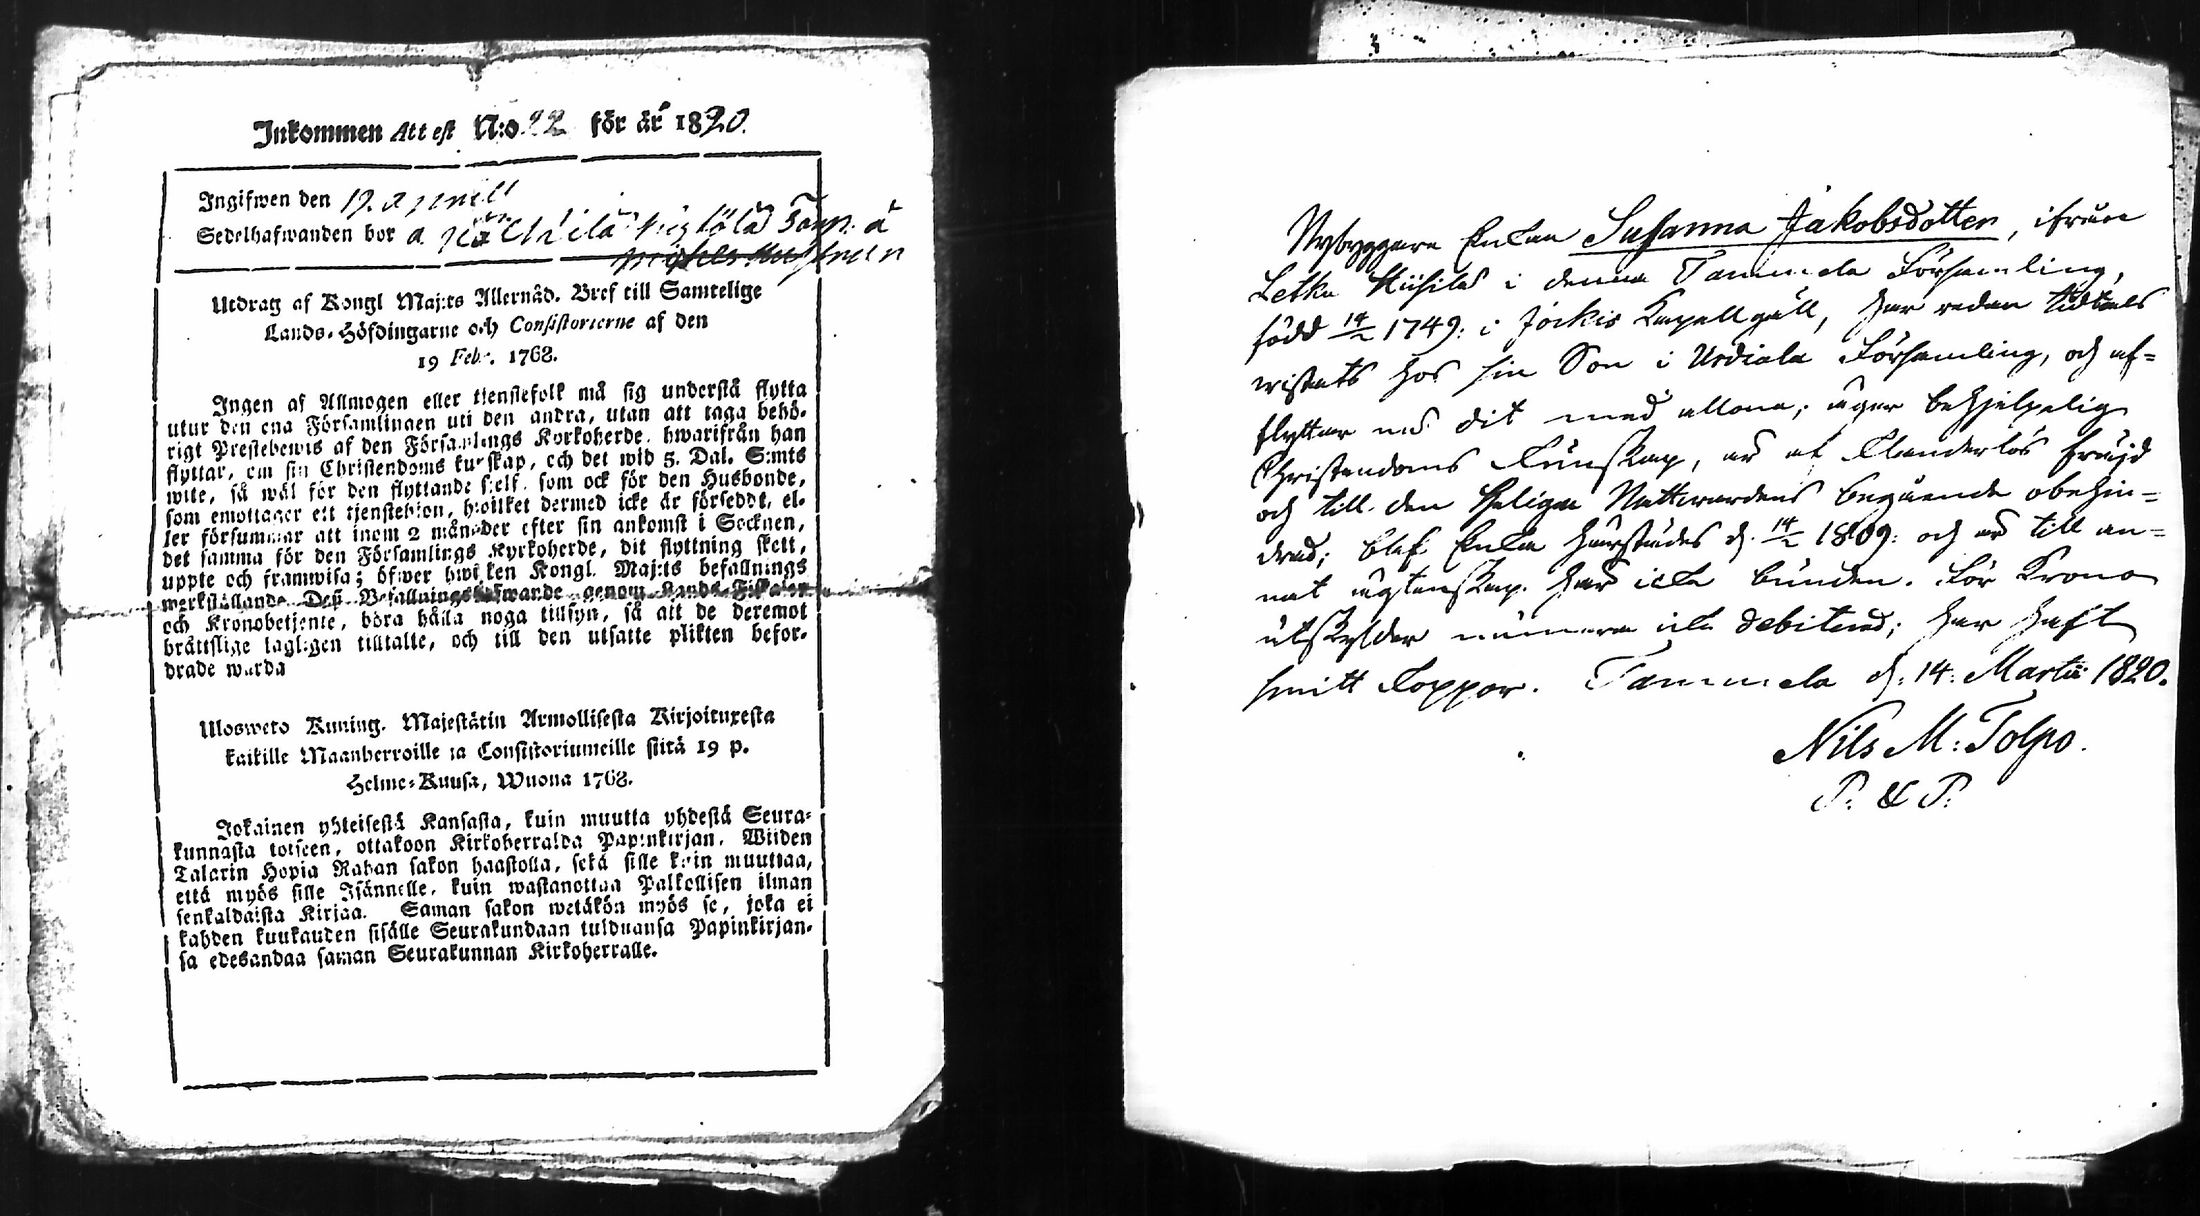 Inkommen Attest N:o 22 för år 1820.
Ingifwen den 19. Aprill
Sedelhafwanden bor å
Utdrag af Kongl Maj:ts Allernåd. Bref till Samtelige
Lands-Höfdingarne och Consistorierne af den
19 Febr. 1768.
Ingen af Allmogen eller tjenstefolk må sig understå flytta
utur den ena Församlingen uti den andra, utan att taga behö-
rigt Prestebewis af den Församlings Kyrkoherde, hwarifrån han
flyttar, om sin Christendoms kunskap, och det wid 5. Dal. S:mts
wite, så wäl för den flyttande sjelf, som ock för den Husbonde,
som emottager ett tjenstehion, hwilket dermed icke är försedt, el-
ler försummar att inom 2 månader efter sin ankomst i Socknen,
det samma för den Församlings Kyrkoherde, dit flyttning skett,
uppte och framwisa; öfwer hwilken Kongl. Maj:ts befallnings
werkställande Deß Befallningshafwande genom Lands-Fiskaler
och Kronobetjente, böra hålla noga tillsyn, så att de deremot
bråttslige lagligen tilltalte, och till den utsatte plikten befor-
drade warda
Ulosweto Kuning. Majestätin Armollisesta Kirjoituxesta
kaikille Maanherroille ja Consistoriumeille siitä 19 p.
Helme-Kuusa, Wuona 1768.
Jokainen yhteisestä Kansasta, kuin muutta yhdestä Seura-
kunnasta toiseen, ottakoon Kirkoherralda Papinkirjan, Wiiden
Talarin Hopia Rahan sakon haastolla, sekä sille kuin muuttaa,
että myös sille Isännelle, kuin wastanottaa Palkollisen ilman
senkaldaista Kirjaa. Saman sakon wetäkön myös se, joka ei
kahden kuukauden sisälle Seurakundaan tulduansa Papinkirjan-
sa edesandaa saman Seurakunnan Kirkoherralle.
Nybyggare Enkan Susanna Jakobsdotter, ifrån
Letku Hiisilä i denna Tammela Församling,
född 14/2 1749: i Jockis Kapellgäll, har redan tidtals
wistats hos sin Son i Urdiala Församling, och af-
flyttar nu dit med allone; äger behjelpelig
Christendoms Kunskap, är af Klanderlös frejd
och till den Heliga Nattwardens begående obehin-
drad; blef Enka härstädes d. 14/2 1809: och är till an-
nat ägtenskap här icke bunden. För Krono
utskylder numera icke debiterad; har haft
smitt koppor. Tammela d. 14. Martii 1820.
Nils M: Tolpo.
P. & P.